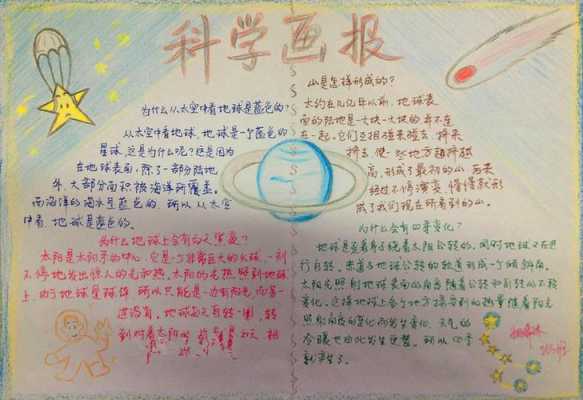 科学画报
为什么从太空中看地球是蓝色的?
从太空中看地球,地球是一个蓝色的
星球,这是为什么呢?这是因为
在地球表面,除了一部分陆地
外,大部分面积被海洋所覆盖。
而海洋的海水是蓝色的,所以从太空
中看,地球是蓝色的。
为什么地球上会有白天黑夜?
太阳是太阳系的中心,它是个非常巨大的火球,一刻
不停地发出惊人的光和热。太阳的光热照到地球
上,由于地球是球体,所以只能是一边有阳光,而另一
边没有。地球每天自转一圈,转
到对着太阳时
山是怎样形成的?
大约在几亿年以前,地球表
面的陆地是一大块一大块的,并不在
在一起,它们互相碰来碰去,挤来
挤去,使一些地方越挤越
高,形成了最初的山,后来
经过不停演变,慢慢就形
成了我们现在所看到的山。
为什么会有四季变化?
地球是歪着身子绕着太阳公转的,同时地球又在进
行自转,赤道与地球公转的轨道形成一个倾斜角。
太阳光照到地球表面的角度随着公转和自转的不断
变化,这样地球上各个地方接受到的热量随着阳光
照射角度的变化而发生变化,天气的
冷暖也由此发生更替,所以四季
就产生了。